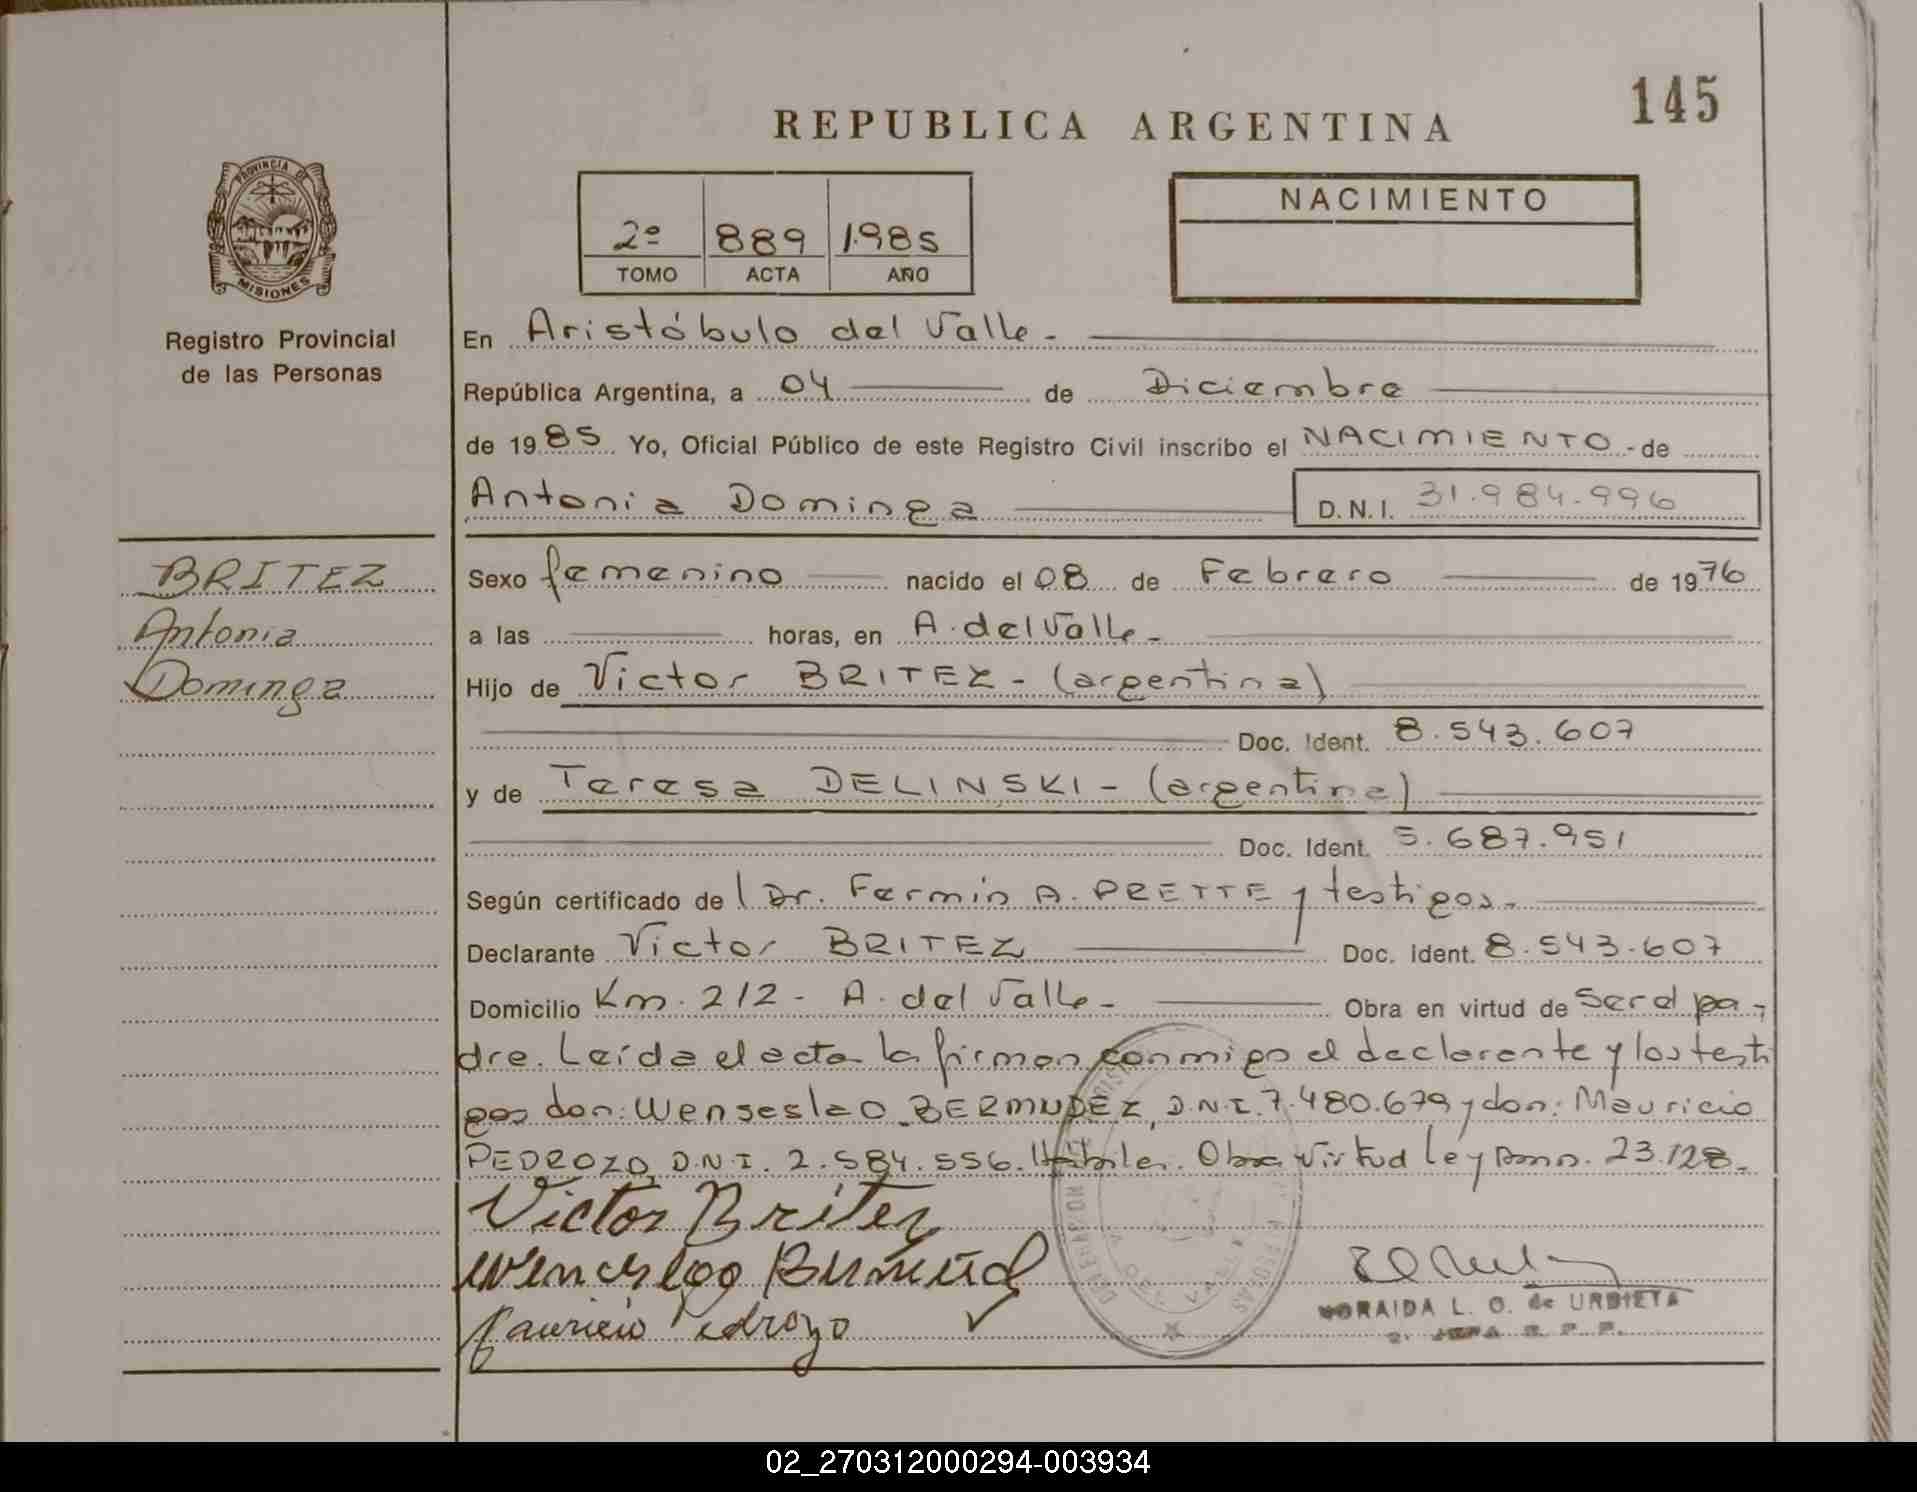 145
REPUBLICA ARGENTINA
PROVINCIA DE
MISIONES
Registro Provincial
de las Personas
2º 889 1.985
TOMO ACTA AÑO
NACIMIENTO
En Aristóbulo del Valle.-
República Argentina, a 04 de Diciembre
de 1985 Yo, Oficial Público de este Registro Civil inscribo el NACIMIENTO.- de
Antonia Dominga D.N.I. 31.984.996
BRITEZ
Antonia
Dominga
Sexo femenino nacido el 08 de Febrero de 1976
a las horas, en A. del Valle.-
Hijo de Victor BRITEZ - (argentina)
Doc. Ident. 8.543.607
y de Teresa DELINSKI - (argentina)
Doc. Ident. 5.687.951
Según certificado de Dr. Fermín A. PRETTE y testigos.-
Declarante Victor BRITEZ Doc. Ident. 8.543.607
Domicilio Km. 212 - A. del Valle.- Obra en virtud de ser el pa-
dre. Leída el acta la firman conmigo el declarante y los testi
gos don: Wenseslao BERMUDEZ, D.N.I. 7.480.679 y don: Mauricio
PEDROZO, D.N.I. 2.584.556. Hábiles. Obra virtud Ley 23.128.-
Victor Britez
Mauricio Pedrozo
L. O. de URBIETA
02_270312000294-003934